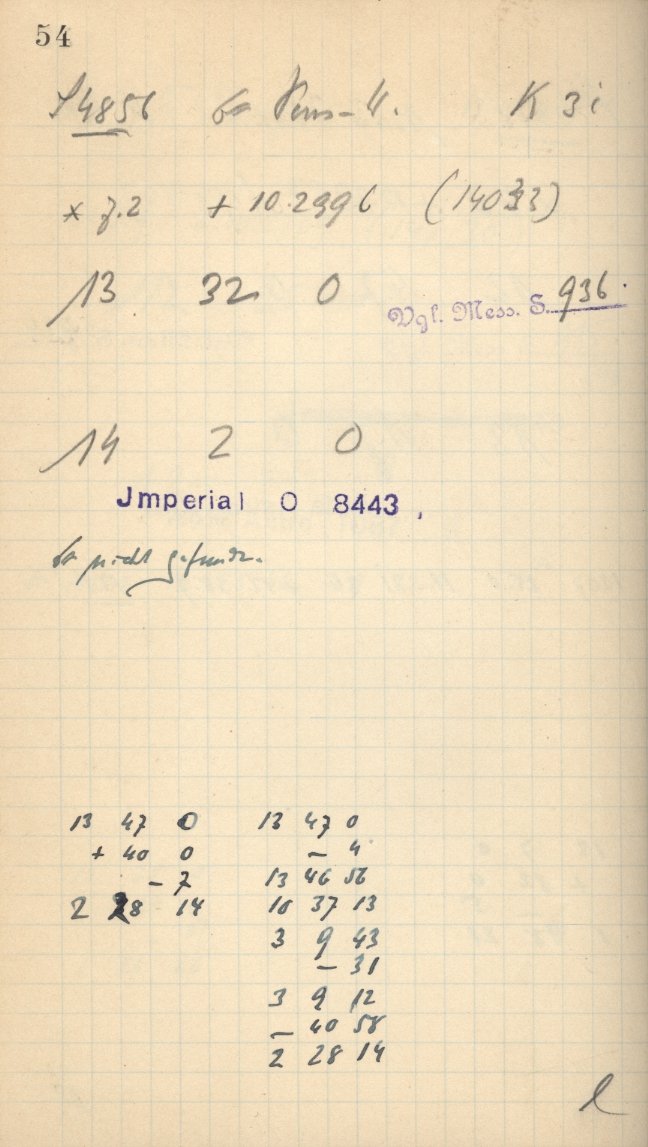 54
4856 K 3i
× 7.2 + 10.2996 (14033)
13 32 0
Vgl. Mess. S. 936.
14 2 0
Jmperial O 8443 ,
nicht gefunden.
13 47 0
+ 40 0
- 7
2 28 14
13 47 0
- 4
13 46 56
10 37 13
3 9 43
- 31
3 9 12
- 40 58
2 28 14
l